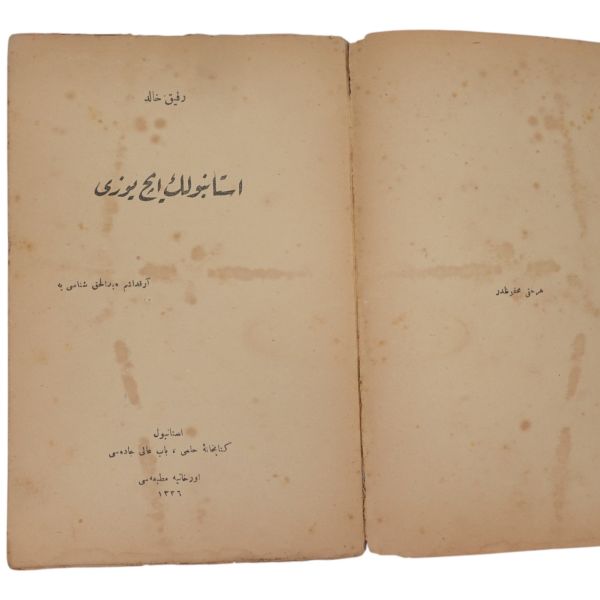 رفيق خالد
استانبولك ايچ يوزى
آرقداشم عبدالحق شناسى يه
استانبول
كتابخانهٔ حلمى ، باب عالى جاده‌سى
اورخانيه مطبعه‌سى
١٣٣٦
هر حقى محفوظدر